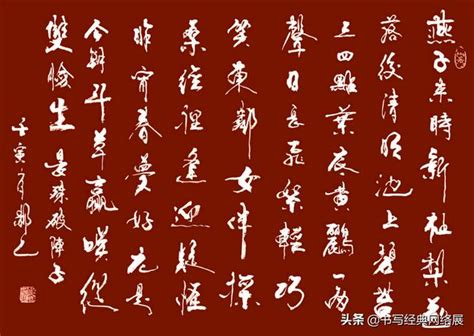 燕子来時新社梨花
落後清明池上碧苔
三四點葉底黄鸝一兩
聲日長飛絮輕巧
笑東鄰女伴採
桑徑裡逢迎疑怪
昨宵春夢好元是
今朝斗草贏咲從
雙臉生晏殊破陣子
壬寅年
头条 @书写经典网络展